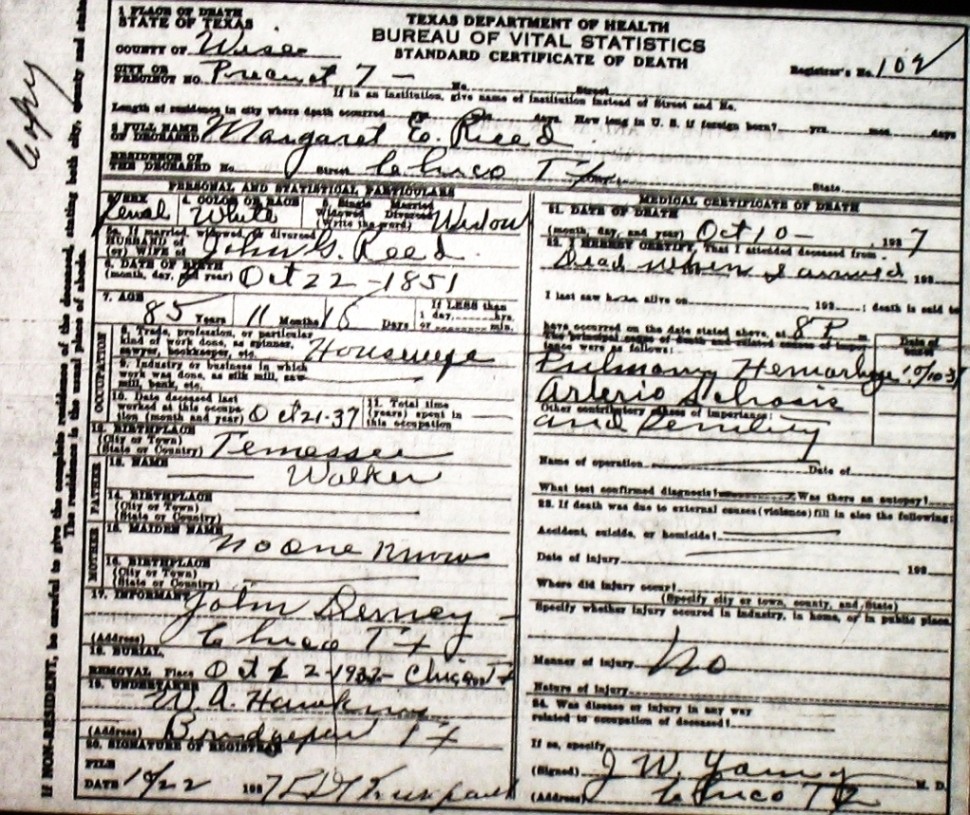 Copy
If NON-RESIDENT, be careful to give the complete residence of the deceased, stating both city, county and state.
The residence is the usual place of abode.
TEXAS DEPARTMENT OF HEALTH
BUREAU OF VITAL STATISTICS
STANDARD CERTIFICATE OF DEATH
Registrar's No. 102
1 PLACE OF DEATH
STATE OF TEXAS
COUNTY OF Wise
CITY OR
PRECINCT NO. Precinct 7 - No. Street
If in an institution, give name of institution instead of Street and No.
Length of residence in city where death occurred yrs. mos. days. How long in U. S. if foreign born? yrs. mos. days
2 FULL NAME
OF DECEASED Margaret E. Reed
RESIDENCE OF
THE DECEASED No. Street Chico Tx State
PERSONAL AND STATISTICAL PARTICULARS
3. SEX Femal 4. COLOR OR RACE White 5. Single Married Widowed Divorced (Write the word) Widow
5a. If married, widowed, or divorced
HUSBAND of
(or) WIFE of John G. Reed
6. DATE OF BIRTH
(month, day, and year) Oct 22 - 1851
7. AGE 85 Years 11 Months 18 Days If LESS than 1 day, hrs. or min.
OCCUPATION
8. Trade, profession, or particular
kind of work done, as spinner,
sawyer, bookkeeper, etc. Housewife
9. Industry or business in which
work was done, as silk mill, saw
mill, bank, etc.
10. Date deceased last
worked at this occupa-
tion (month and year) Oct 21-37
11. Total time
(years) spent in
this occupation
12. BIRTHPLACE
(City or Town)
(State or Country) Temessee
FATHER
13. NAME Walker
14. BIRTHPLACE
(City or Town)
(State or Country)
MOTHER
15. MAIDEN NAME
No one know
16. BIRTHPLACE
(City or Town)
(State or Country)
17. INFORMANT John
(Address) Chico Tx
18. BURIAL,
REMOVAL Place Oct 12 Chico Tx
19. UNDERTAKER
W. A. Hawkins
(Address) Bridgeport Tx
20. SIGNATURE OF REGISTRAR
FILE
DATE 10/22 1937
MEDICAL CERTIFICATE OF DEATH
21. DATE OF DEATH
(month, day, and year) Oct 10 - , 1937
22. I HEREBY CERTIFY, That I attended deceased from
Dead when I arrived 193
I last saw h alive on 193 ; death is said to
have occurred on the date stated above, at 8 P m
The principal cause of death and related causes of impor-
tance were as follows: Date of onset
Pulmonary Hemorhage 10/10-37
Arterio Sclrosis
Other contributory causes of importance:
and Senility
Name of operation Date of
What test confirmed diagnosis? Was there an autopsy?
23. If death was due to external causes (violence) fill in also the following:
Accident, suicide, or homicide?
Date of injury 193
Where did injury occur?
(Specify city or town, county, and State)
Specify whether injury occured in industry, in home, or in public place.
Manner of injury No
Nature of injury
24. Was disease or injury in any way
related to occupation of deceased?
If so, specify
(Signed) J. W. Young M. D.
(Address) Chico Tx